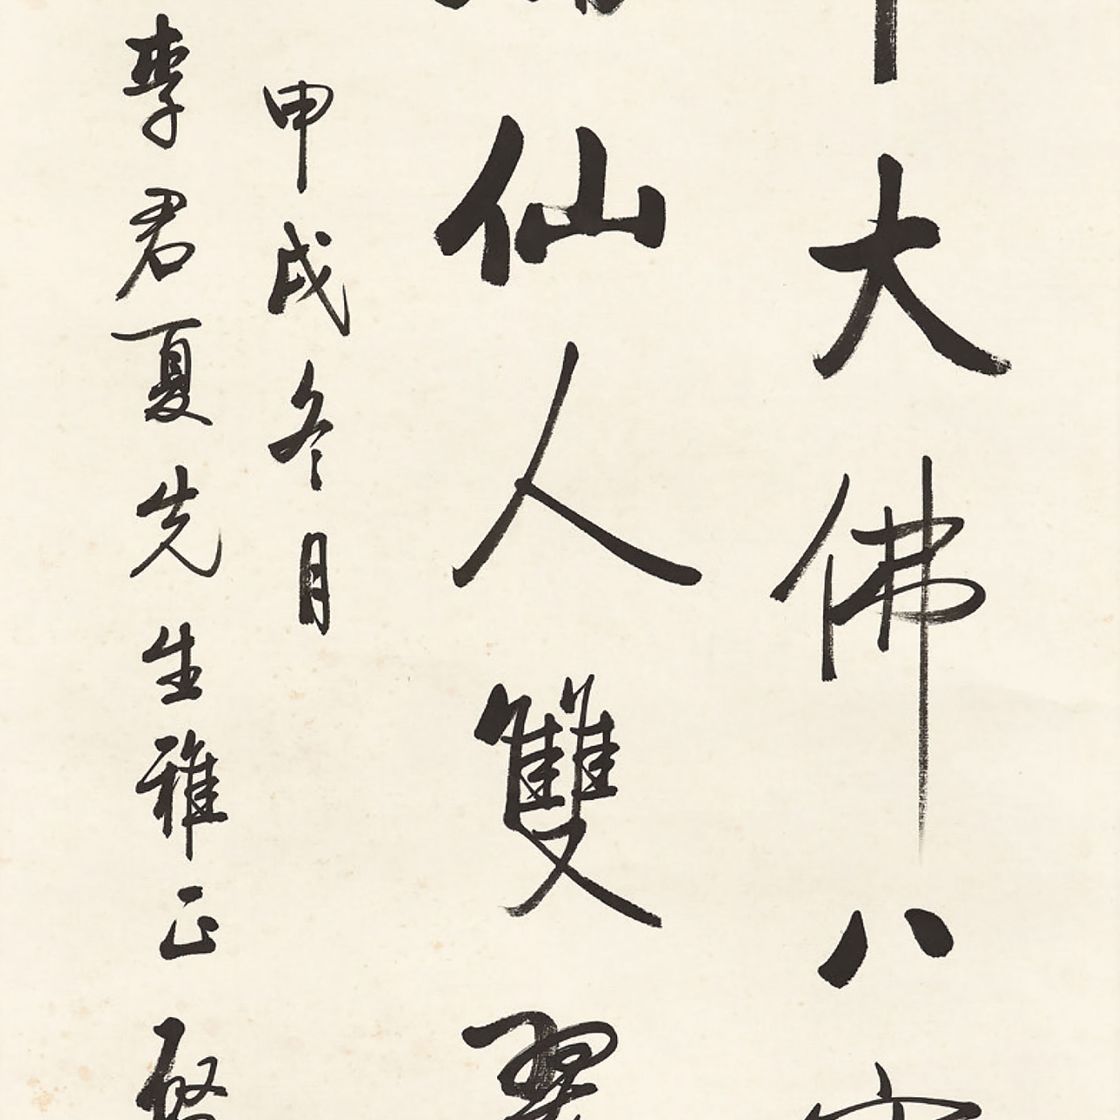 大佛八
仙人雙
甲戌冬月
李君夏先生雅正